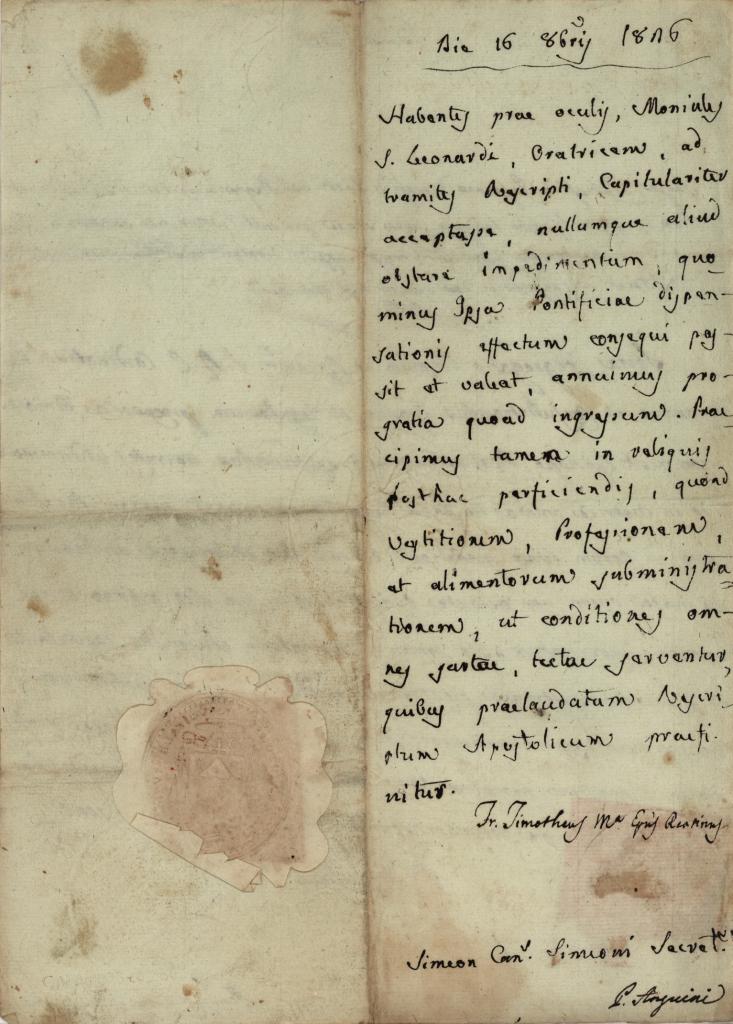 Die 16 8bris 1826
Habentes prae oculis, Moniales
S. Leonardi, Oratricem, ad
tramites Rescripti, Capitulariter
acceptasse, nullumque aliud
obstare impedimentum, quo-
minus Ipsa Pontificiae dispen-
sationis effectum consequi pos-
sit et valeat, annuimus pro
gratia quoad ingressum. Prae
cipimus tamen in reliquis
posthac perficiendis, quoad
vestitionem, Professionem,
et alimentorum subministra
tionem, ut conditiones om-
nes sartae, tectae serventur,
quibus praelaudatum Rescri
ptum Apostolicum praefi-
nitur.
Fr. Timotheus Ma Epus Reatinus
Simeon Can. Simeoni Secret.